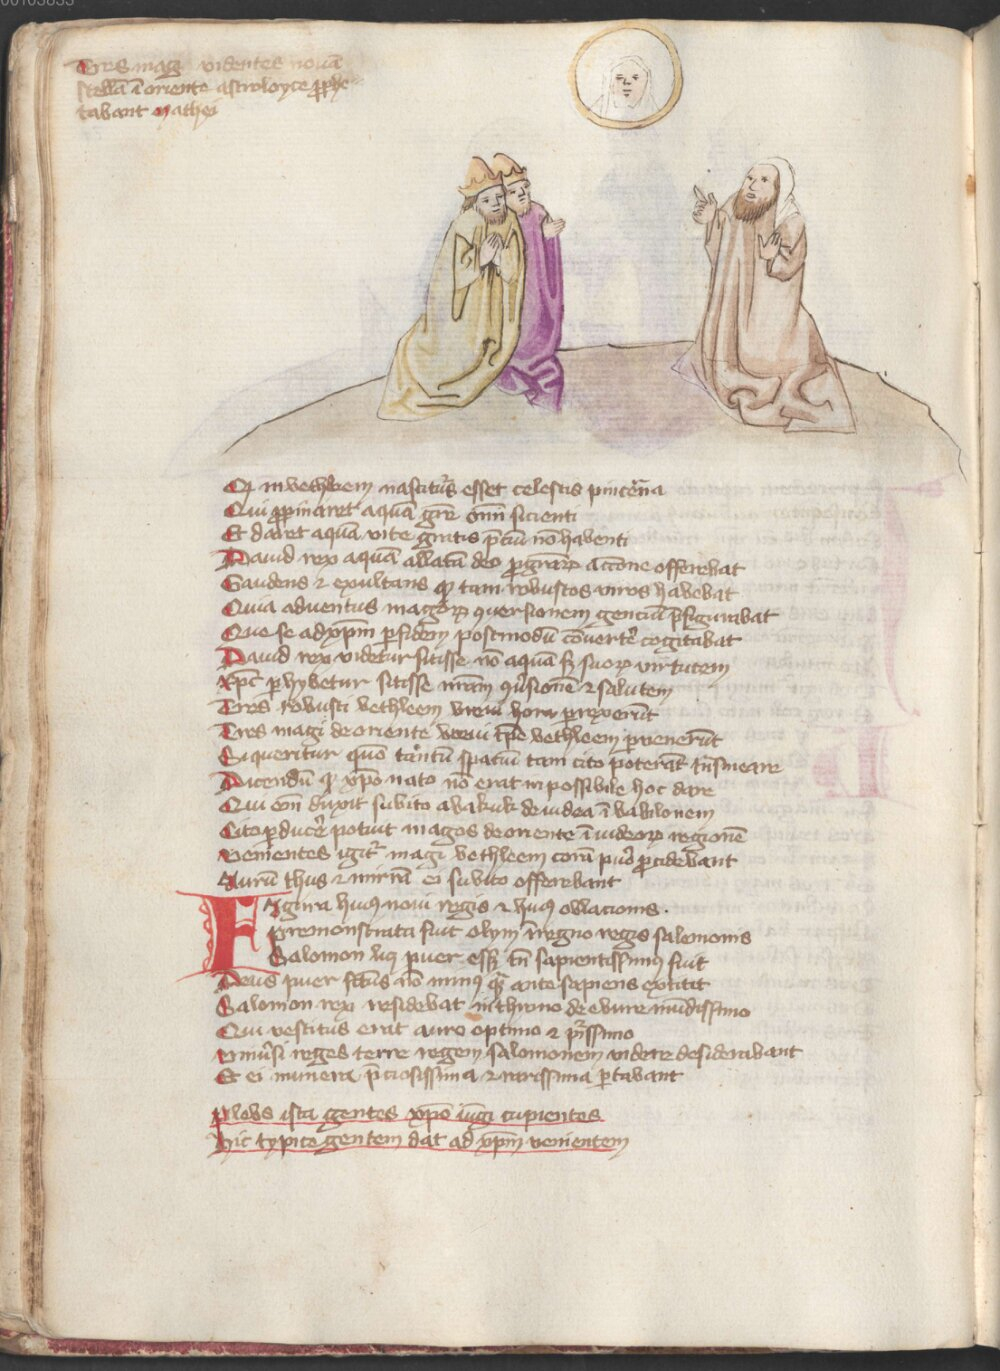 00103833
Tres magi videntes nouā
stellā ī oriente astroloyce ꝓphe
tabant Mathei
Qꝫ in bethleem nasciturꝰ esset celestis pincerna
Qui ꝓpinaret aquā grē om̄i sicienti
Et daret aquā vite gratis p̄ciū nō habenti
Dauid rex aquā allatā deo ꝓ grar̄ actōne offerebat
Gaudens et exultans qꝫ tam robustos viros habebat
Quia aduentus magorꝝ ꝯuersionem genciū p̄figurabat
Que se ad xp̄m ꝑ fidem postmodū cōuerte᷑ cogitabat
Dauid rex videtur sitisse nō aquā sꝫ suorꝝ virtutem
xp̄c ꝑhybetur sitisse nr̄am ꝯuˢsionē et salutem
Tres robusti bethleem breui hora ꝑrexerūt
Tres magi de oriente breui tp̄e bethleem ꝑuenerūt
Si queritur quō tantū spatiū tam cito poterāt trāsmeare
Dicendū qꝫ xp̄o nato nō erat inpossibile hoc dare
Qui em̄ duxit subito abakuk de iudea ī babilonem
Cito ꝑduce᷑ potuit magos de oriente ī iudeorꝝ regionē
Venientes igiᵗ magi bethleem corā puᵒ ꝓcidebant
Aurū thus et mirrā ei subito offerebant
Figura huiꝰ noui regis et huiꝰ oblacionis.
premonstrata fuit olym ī regno regis salomonis
Salomon lꝫ puer essꝫ tn̄ sapientissimꝰ fuit
Deus puer fcūs nō minꝰ qᵃ ante sapiens extitit
Salomon rex residebat in throno de ebure mūdissimo
Qui vestitus erat auro optimo et puˢissimo
Vniuˢsi reges terre regem salomonem videre desiderabant
Et ei munera p̄ciosissima et rarissima ꝑtabant
plebs ista gentes xp̄o iūgi cupientes
Hic typice gentem dat ad xp̄m venientem